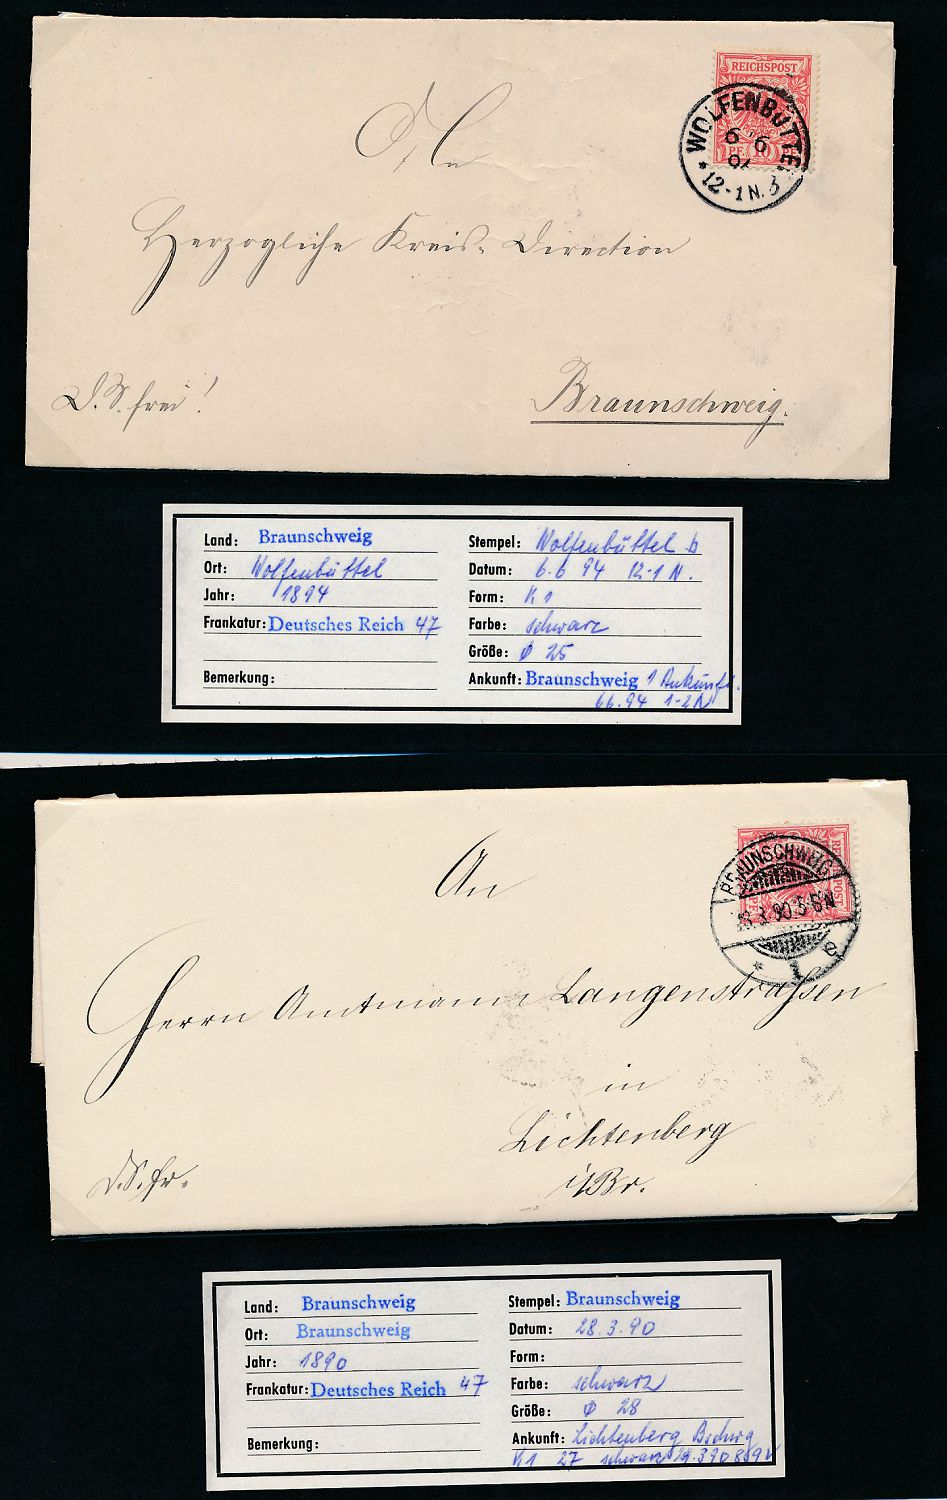 REICHSPOST
PF. 10 PF.
WOLFENBÜTTEL
6 6
94
* 12-1 N. b
An
Herzogliche Kreis-Direction
D.S. frei!
Braunschweig.
Land: Braunschweig
Ort: Wolfenbüttel
Jahr: 1894
Frankatur: Deutsches Reich 47
Bemerkung:
Stempel: Wolfenbüttel b
Datum: 6.6 94 12-1 N.
Form: K1
Farbe: schwarz
Größe: Ø 25
Ankunft: Braunschweig 1 Ankunft.
6.6.94 1-2N
BRAUNSCHWEIG
28.3.90.5-6N
* 1 e
An
Herrn Amtmann Langenstrassen
in
Lichtenberg
i/Br.
D.S. fr.
Land: Braunschweig
Ort: Braunschweig
Jahr: 1890
Frankatur: Deutsches Reich 47
Bemerkung:
Stempel: Braunschweig
Datum: 28.3.90
Form:
Farbe: schwarz
Größe: Ø 28
Ankunft: Lichtenberg Bschwg
K1 27 schwarz 29.3 90 8-9V